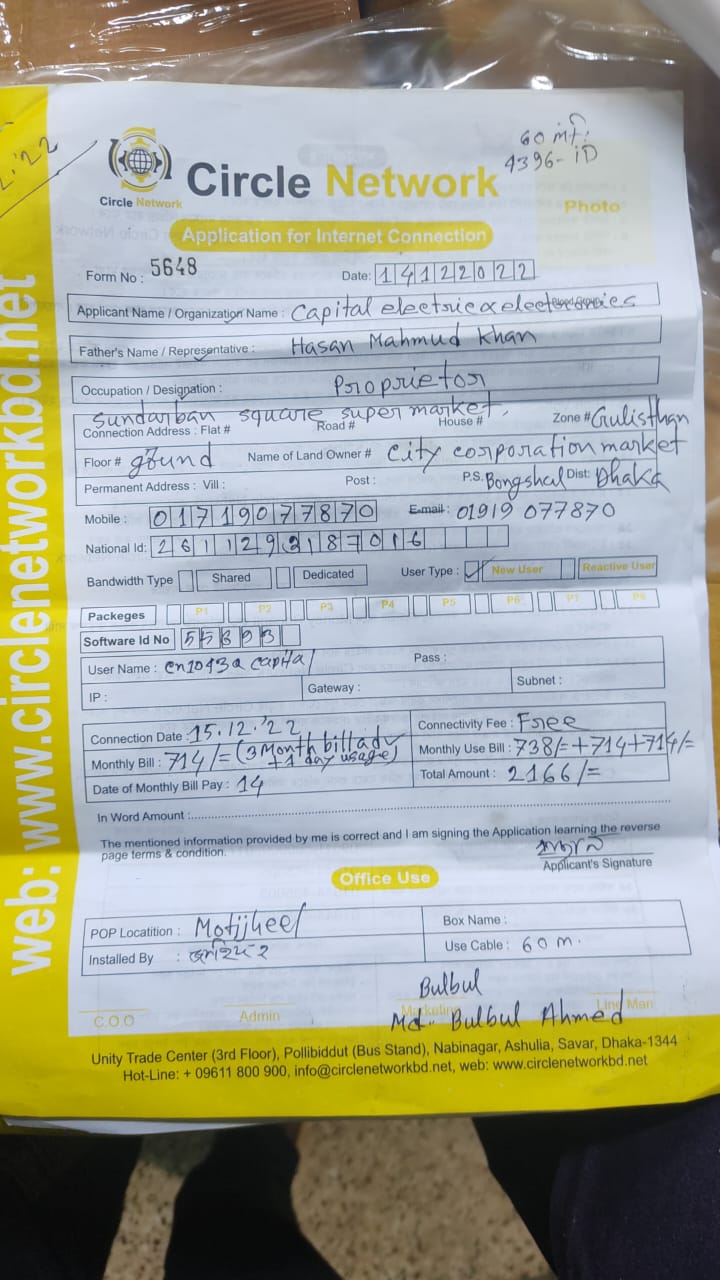 2.'22
60 mt:
4396-ID
Circle Network
Circle Network
Photo
Application for Internet Connection
Form No : 5648
Date: 14122022
Applicant Name / Organization Name : Capital electric &
Father's Name / Representative : Hasan Mahmud Khan
Occupation / Designation : Proprietor
Sundarban square super market,
Connection Address : Flat # Road # House # Zone # Gulisthan
Floor # gound Name of Land Owner # City corporation market
Permanent Address : Vill : Post : P.S. Bongshal Dist: Dhaka
Mobile : 01719077870 E-mail : 01919 077870
National Id:
Bandwidth Type Shared Dedicated User Type : New User Reactive User
Packeges P1 P2 P3 P4 P5 P6 P7 P8
Software Id No
User Name : Pass :
IP : Gateway : Subnet :
Connection Date : 15.12.'22 Connectivity Fee : Free
Monthly Bill : 714/= (3 Month bill adv + 1 day usage) Monthly Use Bill : 738/=+714+714/=
Date of Monthly Bill Pay : 14 Total Amount : 2166/=
In Word Amount :
The mentioned information provided by me is correct and I am signing the Application learning the reverse
page terms & condition.
Applicant's Signature
Office Use
POP Locatition : Motijheel Box Name :
Installed By : Use Cable : 60 m.
Bulbul
C.O.O Admin Marketing Line Man
Md. Bulbul Ahmed
Unity Trade Center (3rd Floor), Pollibiddut (Bus Stand), Nabinagar, Ashulia, Savar, Dhaka-1344
Hot-Line: + 09611 800 900, info@circlenetworkbd.net, web: www.circlenetworkbd.net
web: www.circlenetworkbd.net